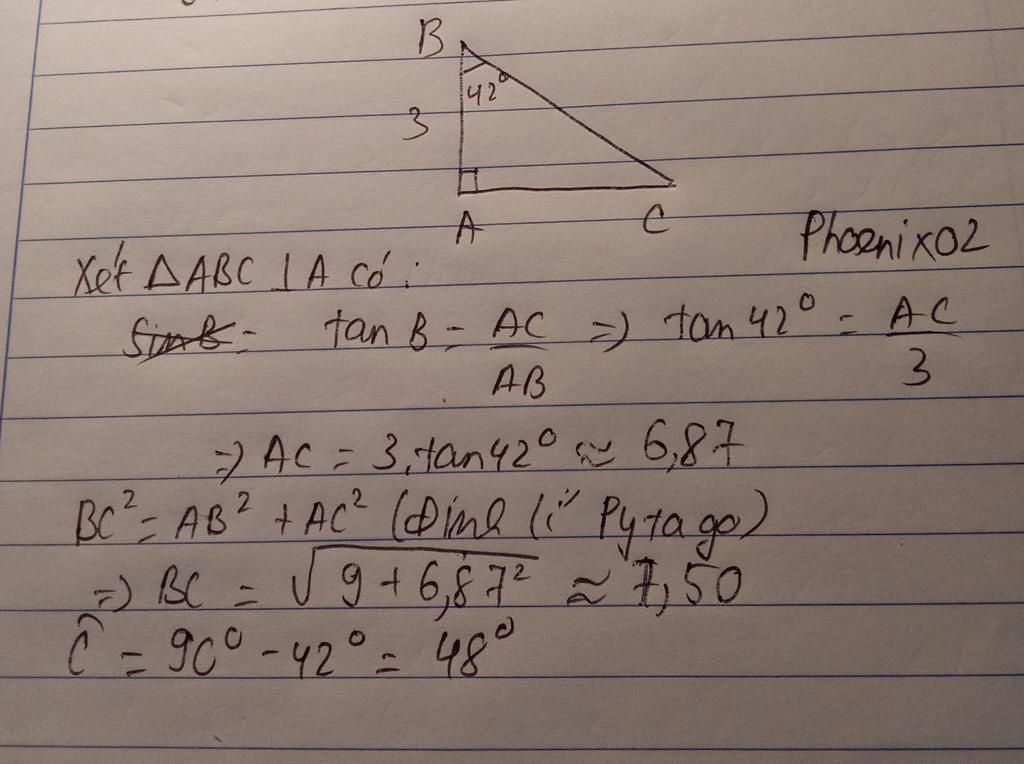 B
42°
3
A C
Phoenix02
Xét △ABC ⊥ A có:
SinB = tan B = AC/AB => tan 42° = AC/3
=> AC = 3.tan42° ≈ 6,87
BC² = AB² + AC² (Định lí Pytago)
=> BC = √(9 + 6,87²) ≈ 7,50
Ĉ = 90° - 42° = 48°